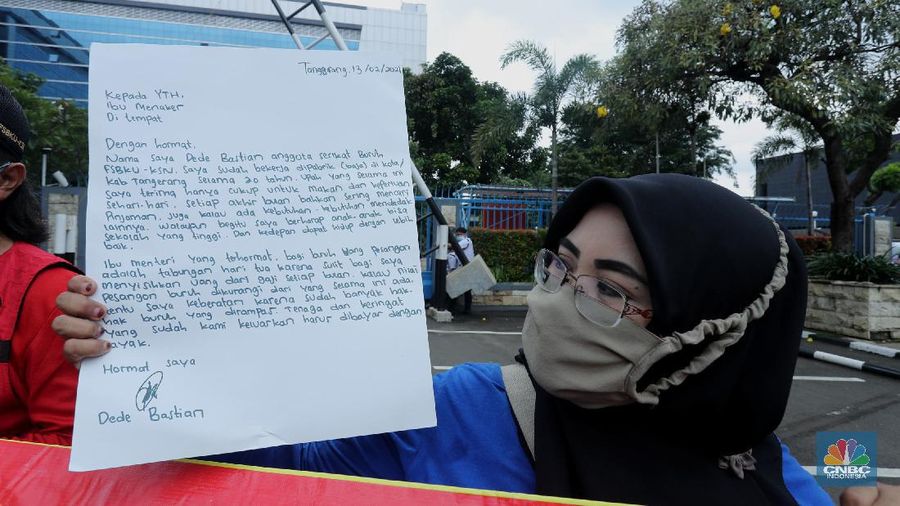 Tanggerang, 13/02/2021
Kepada YTH,
Ibu Menaker
Di tempat
Dengan hormat,
Nama saya Dede Bastian anggota serikat Buruh
FSBKU-KSN. Saya sudah bekerja dipabrik (baja) di kota/
kab Tangerang selama 20 tahun. Upah yang selama ini
saya terima hanya cukup untuk makan dan keperluan
sehari-hari, setiap akhir bulan bahkan sering mencari
Pinjaman, juga kalau ada kebutuhan-kebutuhan mendadak
lainnya. Walaupun begitu saya berharap anak-anak bisa
sekolah yang tinggi. Dan kedepan dapat hidup dengan lebih
baik.
Ibu menteri yang terhormat, bagi buruh uang pesangon
adalah tabungan hari tua karena sulit bagi saya
menyisihkan uang dari gaji setiap bulan. kalau nilai
pesangon buruh dikurangi dari yang selama ini ada.
tentu saya keberatan karena sudah banyak hak-
hak buruh yang dirampas. Tenaga dan keringat
yang sudah kami keluarkan harus dibayar dengan
layak.
Hormat saya
Dede Bastian
FSBKU-KSN
CNBC
INDONESIA